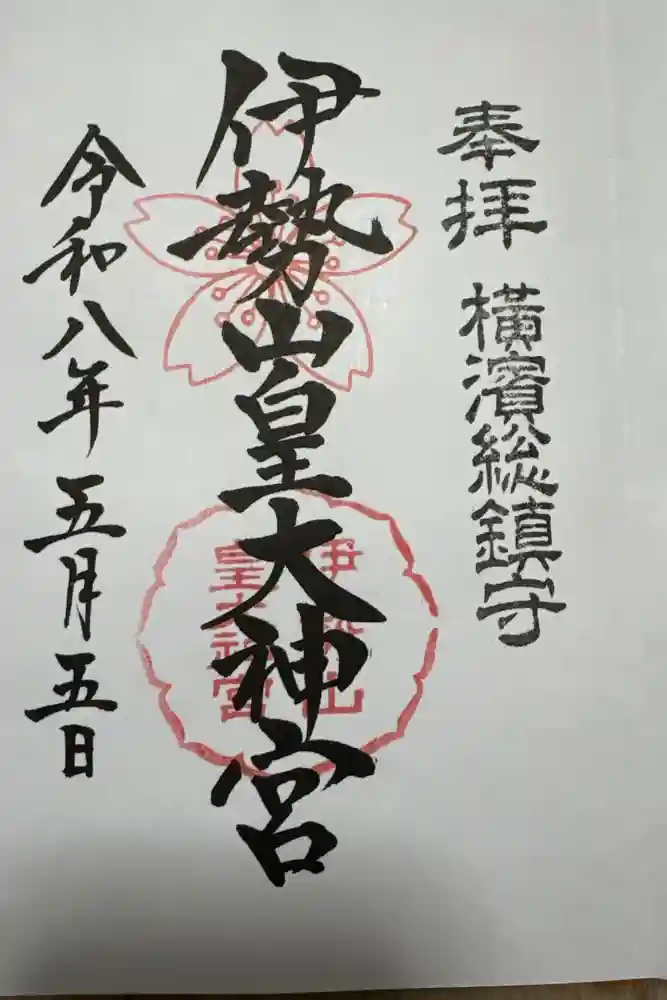 奉拝 横濱総鎮守
伊勢山皇大神宮
伊勢山
皇大神宮
令和八年五月五日